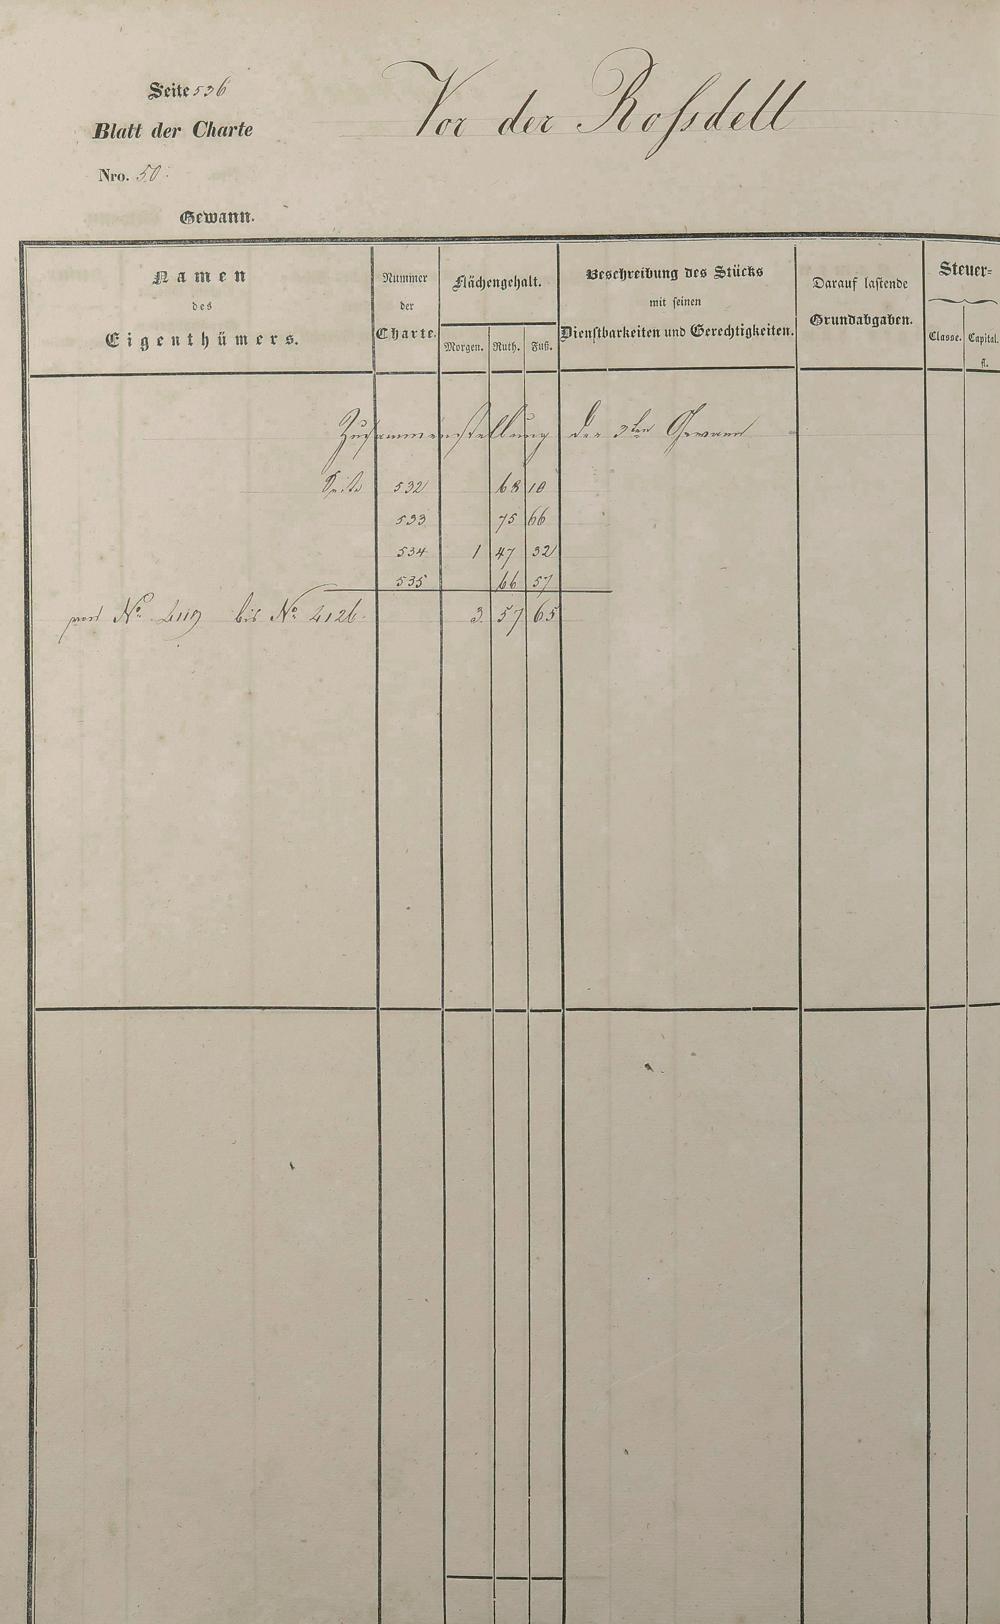 Seite 536
Blatt der Charte
Nro. 50.
Gewann.
Vor der Roſsdell
Namen
des
Eigenthümers.
Nummer
der
Charte.
Flächengehalt.
Morgen. Ruth. Fuß.
Beschreibung des Stücks
mit seinen
Dienstbarkeiten und Gerechtigkeiten.
Darauf lastende
Grundabgaben.
Steuer=
Classe. Capital.
fl.
Zusammenstellung der 3ten Gewann
Seite 532 68 10
533 75 66
534 1 47 32
535 66 57
von No. 4119 bis No. 4126. 3. 57 65